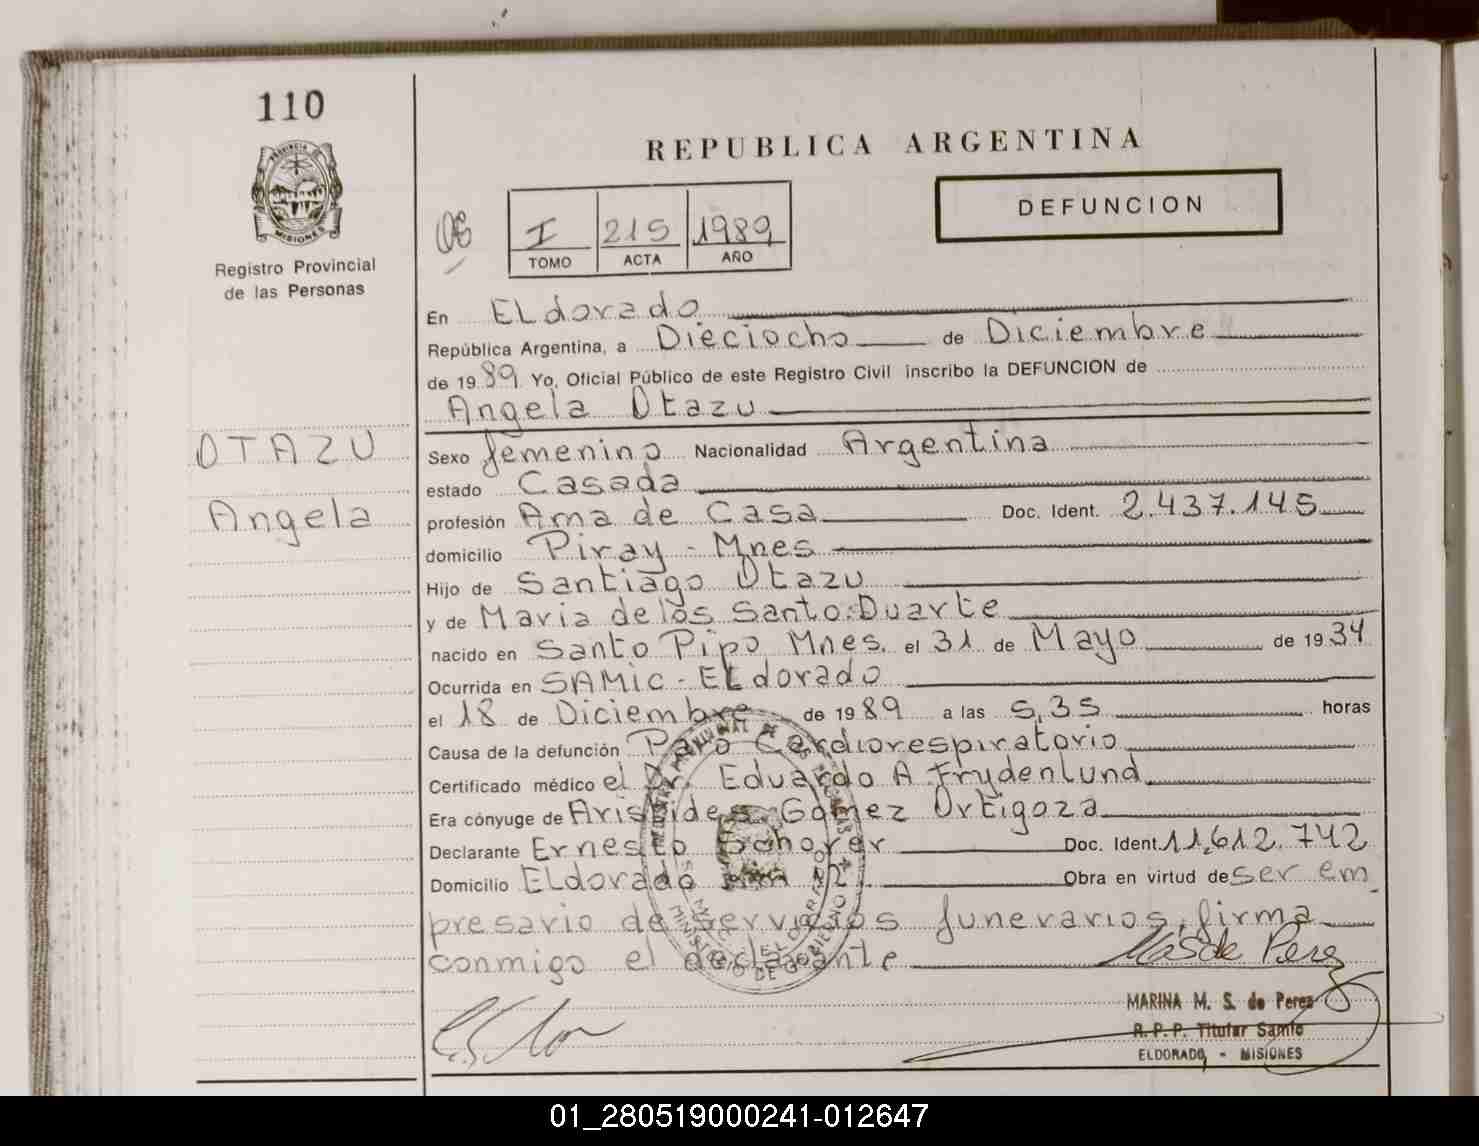 110
PROVINCIA
MISIONES
Registro Provincial
de las Personas
OTAZU
Angela
REPUBLICA ARGENTINA
DEFUNCION
I 215 1989
TOMO ACTA AÑO
En ELdorado
República Argentina, a Dieciocho de Diciembre
de 1989 Yo, Oficial Público de este Registro Civil inscribo la DEFUNCION de
Angela Otazu
Sexo femenino Nacionalidad Argentina
estado Casada
profesión Ama de Casa Doc. Ident. 2.437.145
domicilio Piray - Mnes
Hijo de Santiago Otazu
y de Maria de los Santo Duarte
nacido en Santo Pipo Mnes. el 31 de Mayo de 1934
Ocurrida en SAMIC - ELdorado
el 18 de Diciembre de 1989 a las 5,35 horas
Causa de la defunción Paro Cardiorespiratorio
Certificado médico el Dr. Eduardo A Frydenlund
Era cónyuge de Aristides Gomez Ortigoza
Declarante Ernesto Schorer Doc. Ident. 11.612.742
Domicilio ELdorado Km 12 Obra en virtud de ser em
presario de servicios funerarios, firma
conmigo el declarante
MARINA M. S. de Perez
R. P. P. Titular Samic
ELDORADO - MISIONES
01_280519000241-012647